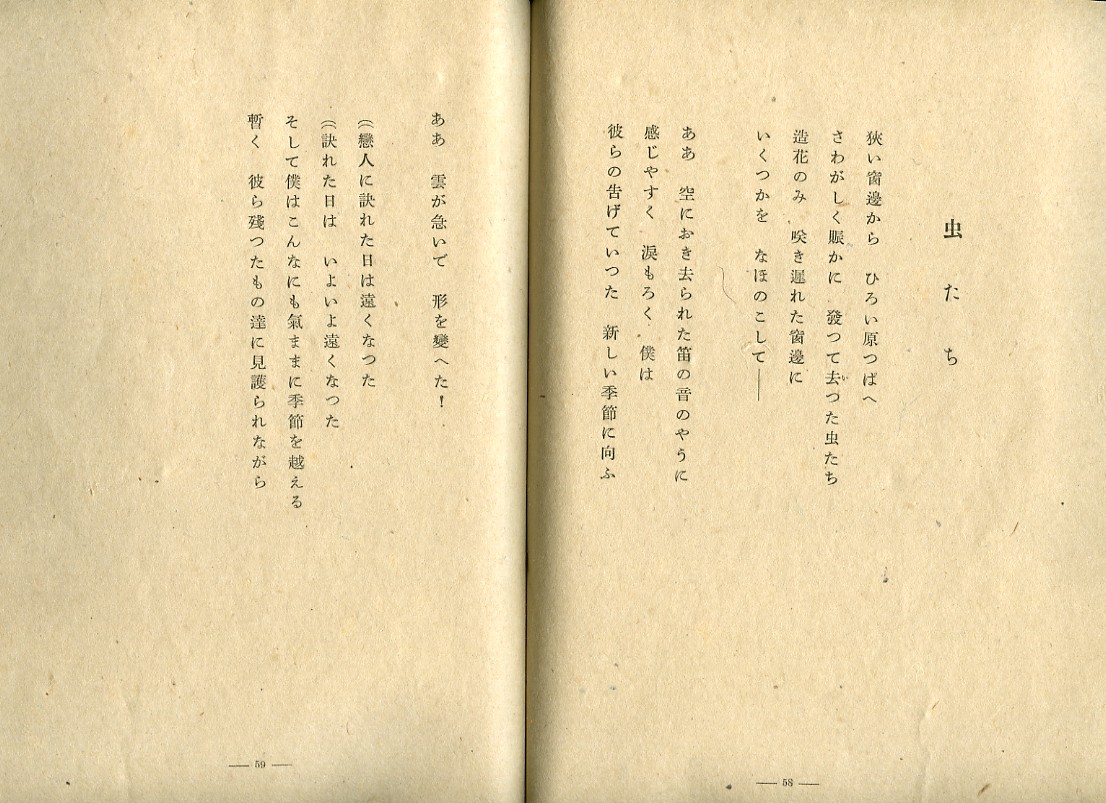 虫たち
狹い窗邊から　ひろい原つぱへ
さわがしく賑かに　發つて去つた虫たち
造花のみ　咲き遲れた窗邊に
いくつかを　なほのこして——
ああ　空におき去られた笛の音のやうに
感じやすく　涙もろく　僕は
彼らの告げていつた　新しい季節に向ふ
— 58 —
ああ　雲が急いで　形を變へた！
（戀人に訣れた日は遠くなつた
（訣れた日は　いよいよ遠くなつた
そして僕はこんなにも氣ままに季節を越える
暫く　彼ら殘つたもの達に見護られながら
— 59 —